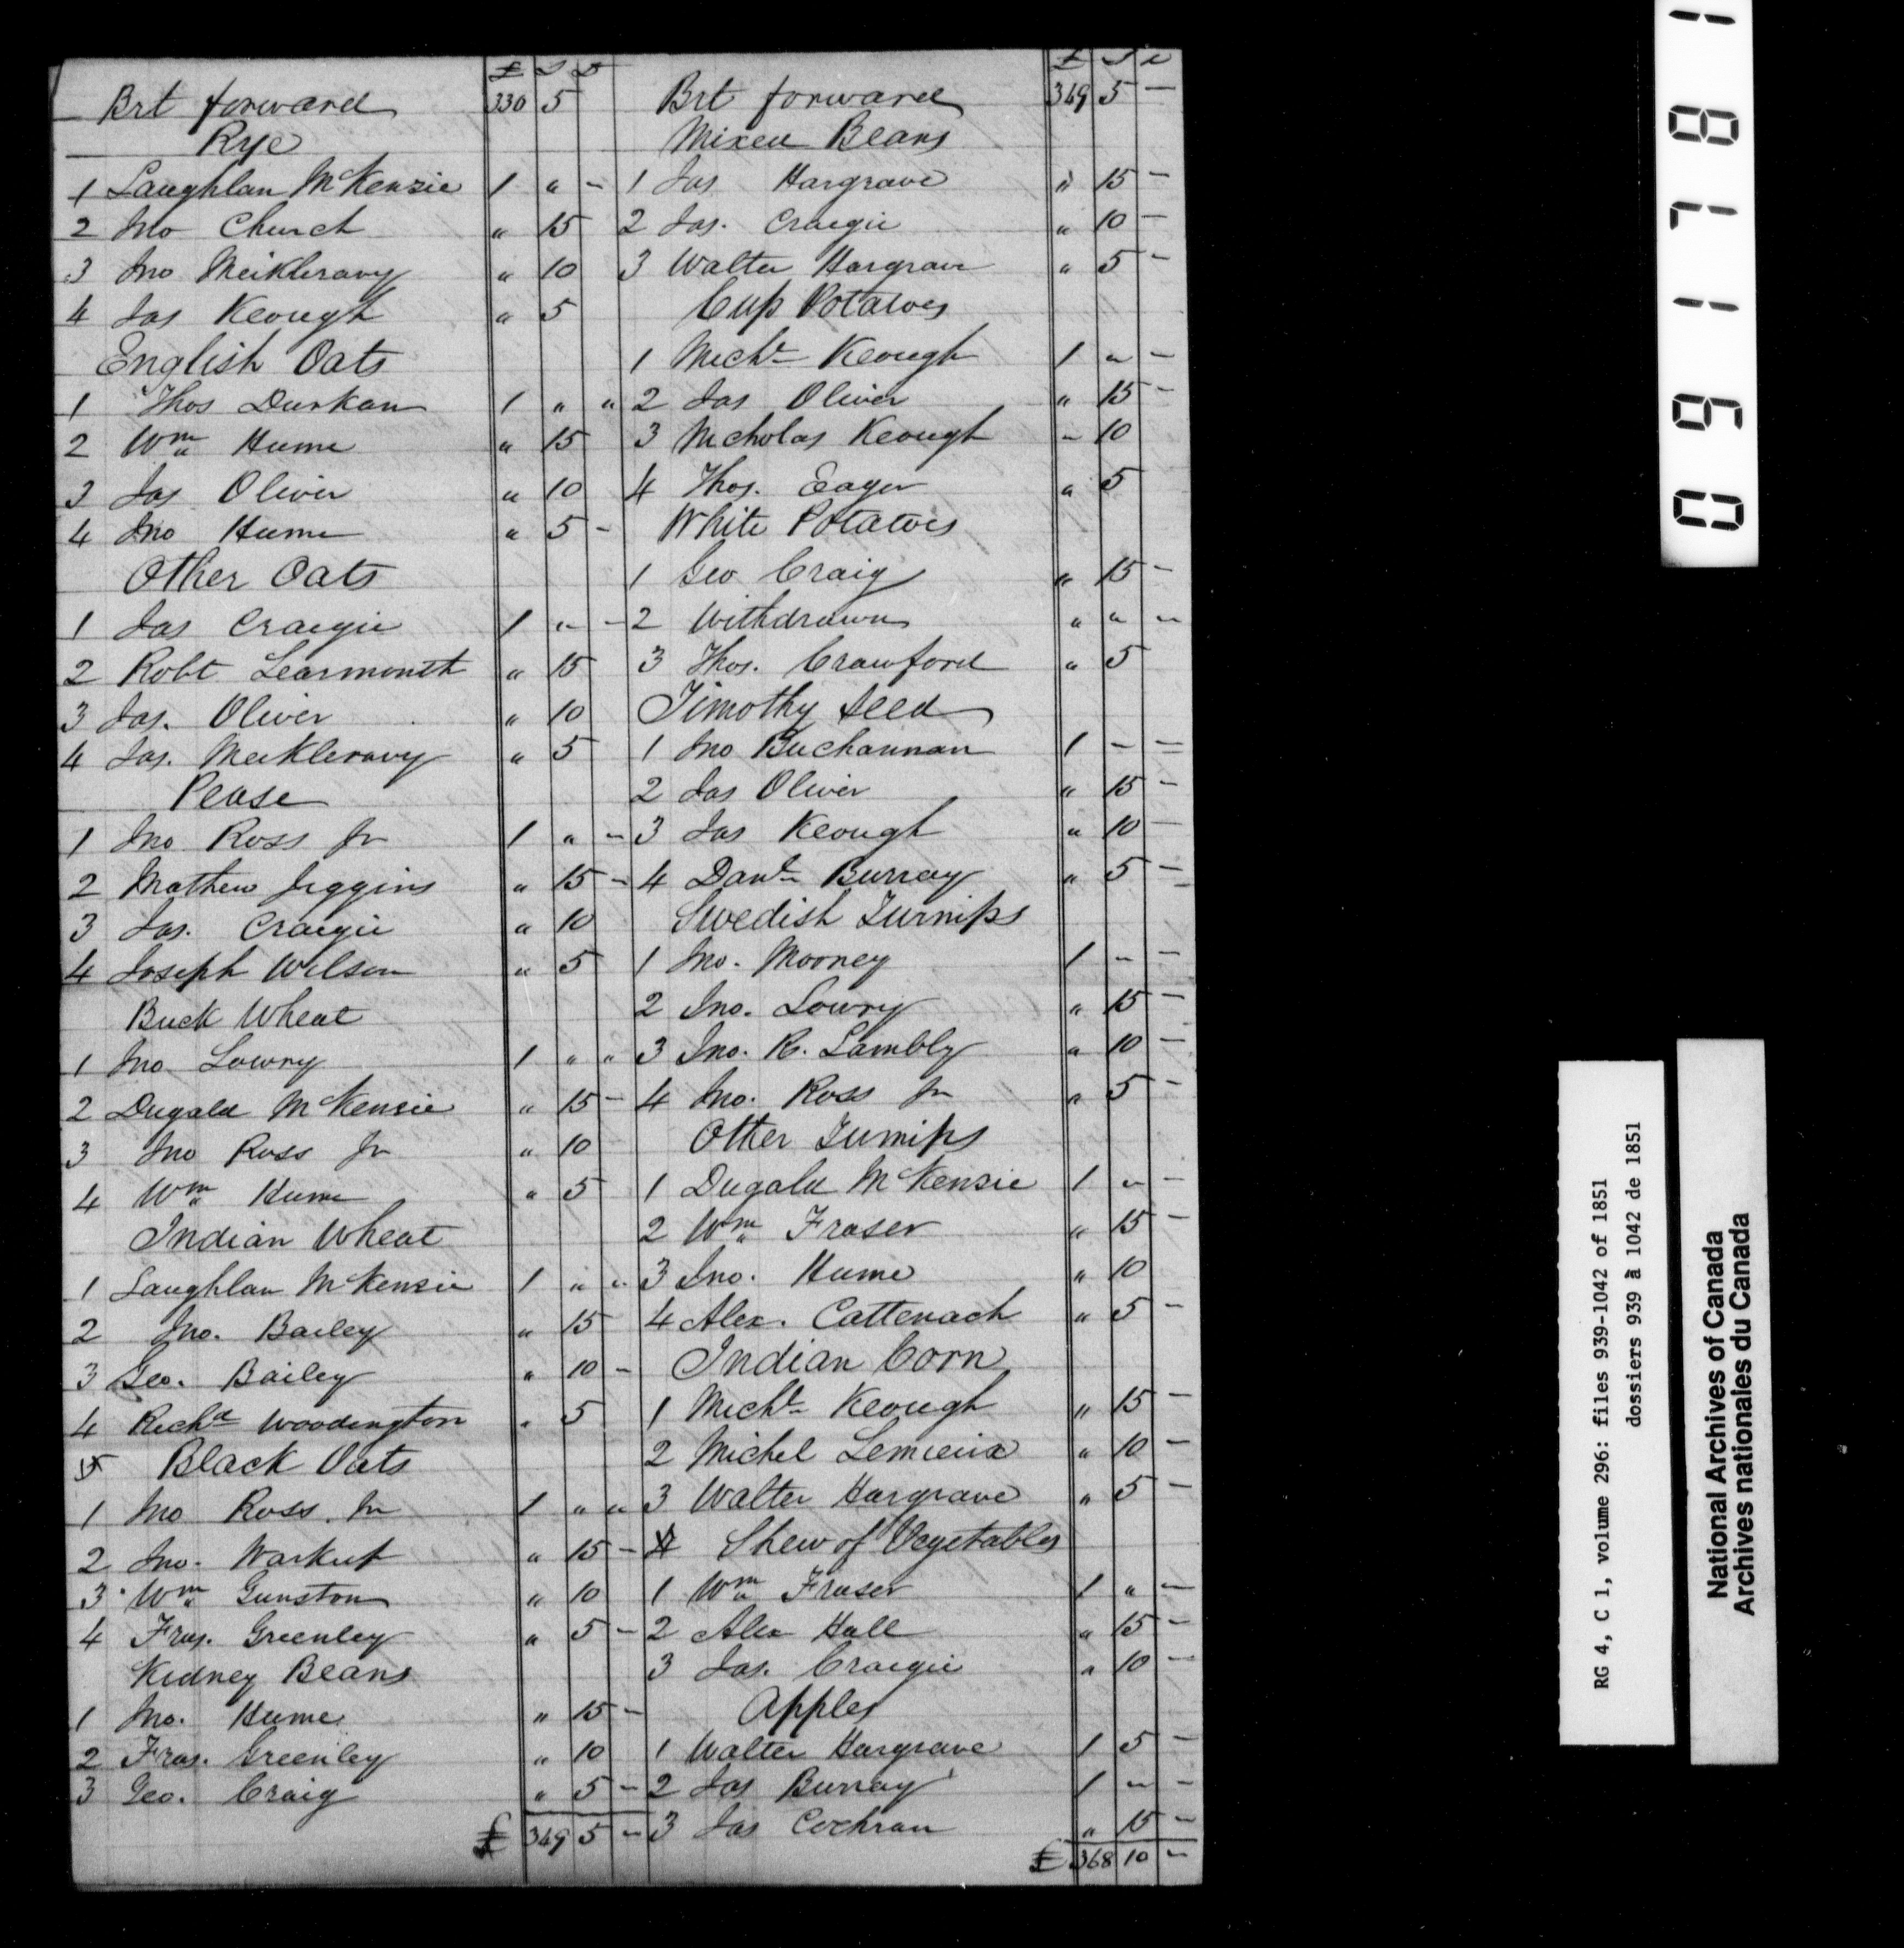 £ S D
Brt forward 330 5
Rye
1 Laughlan McKenzie 1 " -
2 Jno Church " 15
3 Jno Meikleravy " 10
4 Jas Keough " 5
English Oats
1 Thos Durkan 1 " "
2 Wm Hume " 15
3 Jas Oliver " 10
4 Jno Hume " 5 -
Other Oats
1 Jas Craigie 1 " -
2 Robt Learmonth " 15
3 Jas. Oliver " 10
4 Jas. Meikleravy " 5
Pease
1 Jno Ross Jr 1 " -
2 Mathew Jiggins " 15 -
3 Jas. Craigie " 10
4 Joseph Wilson " 5
Buck Wheat
1 Jno Lowry 1 " "
2 Dugald McKensie " 15 -
3 Jno Ross Jr " 10
4 Wm Hume " 5
Indian Wheat
1 Laughlan McKensie 1 " "
2 Jno. Bailey " 15
3 Geo. Bailey " 10 -
4 Richd Woodington " 5
5 Black Oats
1 Jno Ross. Jr 1 " "
2 Jno. Warkup " 15 -
3 Wm Gunston " 10
4 Fras. Greenley " 5 -
Kidney Beans
1 Jno. Hume " 15 -
2 Fras. Greenley " 10
3 Geo. Craig " 5 -
£ 349 5 -
£ S d
Brt forward 349 5 -
Mixed Beans
1 Jas Hargrave " 15 -
2 Jas. Craigie " 10 -
3 Walter Hargrave " 5 -
Cup Potatoes
1 Michl Keough 1 " -
2 Jas Oliver " 15 -
3 Nicholas Keough - 10
4 Thos. Eager " 5
White Potatoes
1 Geo Craig " 15 -
2 Withdrawn " " "
3 Thos. Crawford " 5
Timothy Seed
1 Jno Buchannan 1 - -
2 Jas Oliver " 15 -
3 Jas Keough " 10 -
4 Danl Burray " 5 -
Swedish Turnips
1 Jno. Mooney 1 - -
2 Jno. Lowry " 15 -
3 Jno. R. Lambly " 10 -
4 Jno. Ross Jr " 5 -
Other Turnips
1 Dugald McKensie 1 " -
2 Wm Fraser " 15 -
3 Jno. Hume " 10
4 Alex. Cattenach " 5 -
Indian Corn
1 Michl Keough " 15 -
2 Michel Lemieux " 10 -
3 Walter Hargrave " 5 -
4 Shew of Vegetables
1 Wm Fraser 1 " -
2 Alex Hall " 15 -
3 Jas. Craigie " 10 -
Apples
1 Walter Hargrave 1 5 -
2 Jas Burray 1 " -
3 Jas Cochran " 15 -
£ 368 10 -
091781
RG 4, C 1, volume 296: files 939-1042 of 1851
dossiers 939 à 1042 de 1851
National Archives of Canada
Archives nationales du Canada